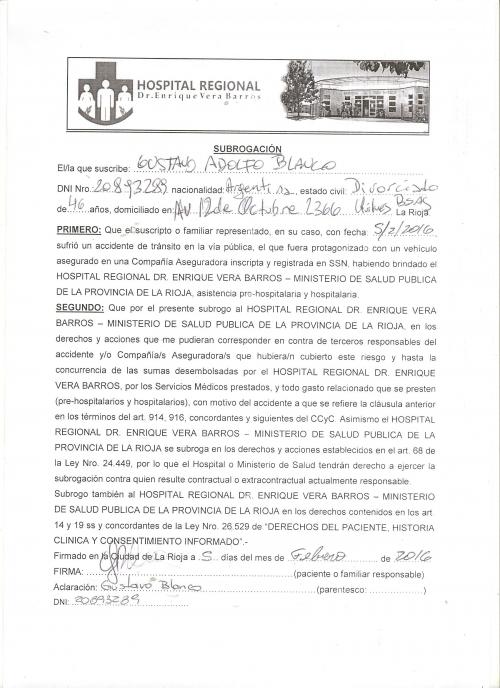 HOSPITAL REGIONAL
Dr. Enrique Vera Barros
SUBROGACIÓN
El/la que suscribe: GUSTAVO ADOLFO BLANCO
DNI Nro. 20.893289 nacionalidad: Argentina, estado civil: Divorciado
de 46 años, domiciliado en: AV 12 de Octubre 2366 BSAS La Rioja.
PRIMERO: Que el suscripto o familiar representado, en su caso, con fecha 5/2/2016
sufrió un accidente de tránsito en la vía pública, el que fuera protagonizado con un vehículo
asegurado en una Compañía Aseguradora inscripta y registrada en SSN, habiendo brindado el
HOSPITAL REGIONAL DR. ENRIQUE VERA BARROS – MINISTERIO DE SALUD PUBLICA
DE LA PROVINCIA DE LA RIOJA, asistencia pre-hospitalaria y hospitalaria.
SEGUNDO: Que por el presente subrogo al HOSPITAL REGIONAL DR. ENRIQUE VERA
BARROS – MINISTERIO DE SALUD PUBLICA DE LA PROVINCIA DE LA RIOJA, en los
derechos y acciones que me pudieran corresponder en contra de terceros responsables del
accidente y/o Compañía/s Aseguradora/s que hubiera/n cubierto este riesgo y hasta la
concurrencia de las sumas desembolsadas por el HOSPITAL REGIONAL DR. ENRIQUE
VERA BARROS, por los Servicios Médicos prestados, y todo gasto relacionado que se presten
(pre-hospitalarios y hospitalarios), con motivo del accidente a que se refiere la cláusula anterior
en los términos del art. 914, 916, concordantes y siguientes del CCyC. Asimismo el HOSPITAL
REGIONAL DR. ENRIQUE VERA BARROS – MINISTERIO DE SALUD PUBLICA DE LA
PROVINCIA DE LA RIOJA se subroga en los derechos y acciones establecidos en el art. 68 de
la Ley Nro. 24.449, por lo que el Hospital o Ministerio de Salud tendrán derecho a ejercer la
subrogación contra quien resulte contractual o extracontractual actualmente responsable.
Subrogo también al HOSPITAL REGIONAL DR. ENRIQUE VERA BARROS – MINISTERIO
DE SALUD PUBLICA DE LA PROVINCIA DE LA RIOJA en los derechos contenidos en los art
14 y 19 ss y concordantes de la Ley Nro. 26.529 de "DERECHOS DEL PACIENTE, HISTORIA
CLINICA Y CONSENTIMIENTO INFORMADO".-
Firmado en la Ciudad de La Rioja a 5 días del mes de Febrero de 2016
FIRMA: (paciente o familiar responsable)
Aclaración: Gustavo Blanco (parentesco: )
DNI: 20893289